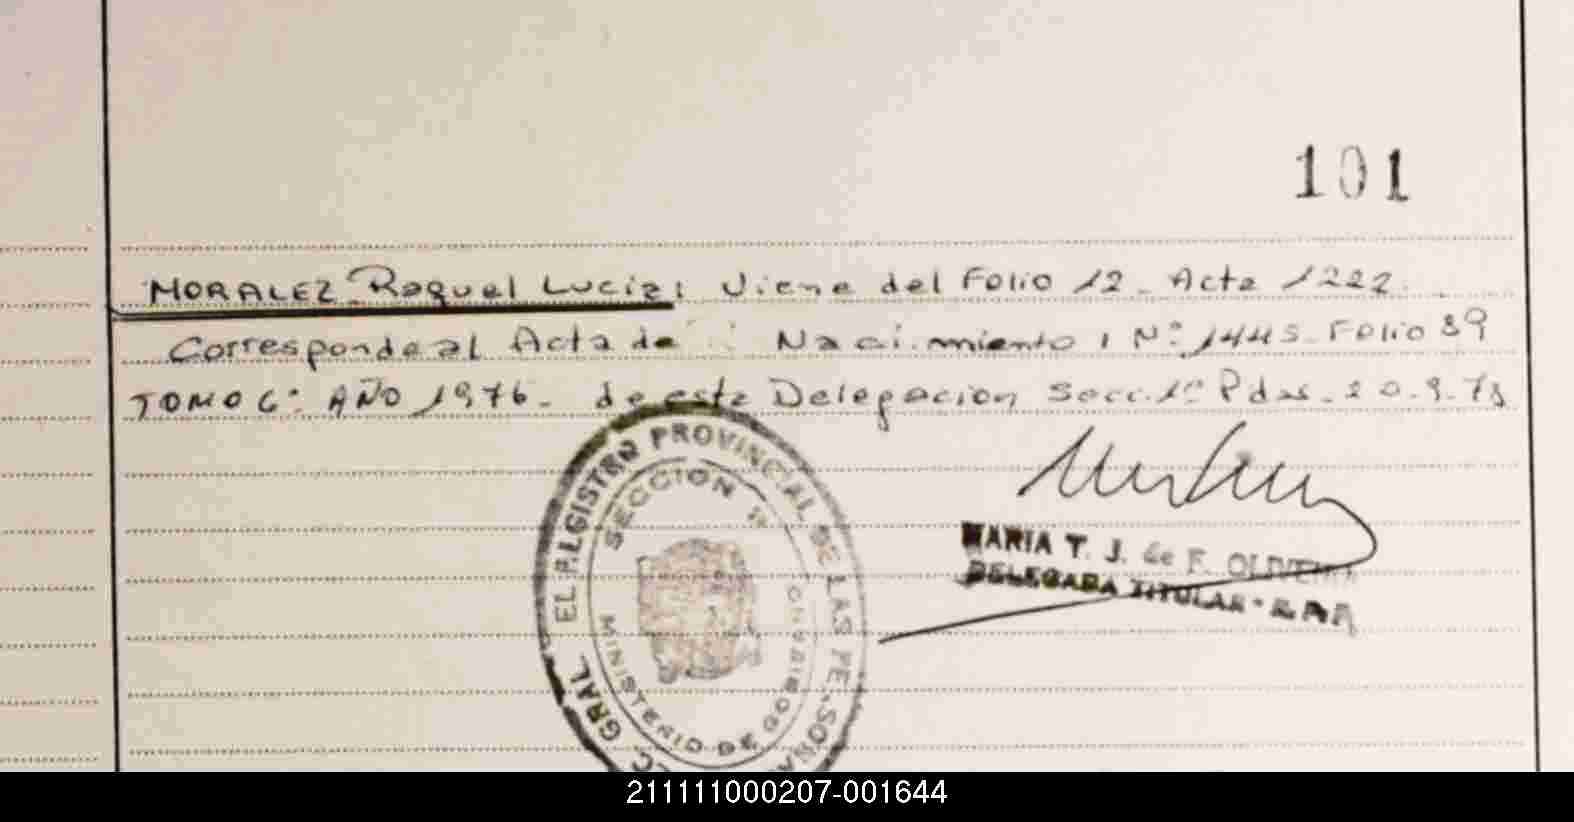 101
MORALEZ Raquel Lucia: Viene del Folio 12 - Acta 1222
Corresponde al Acta de Nacimiento, Nº 1445 - Folio 39
TOMO 6º AÑO 1976 - de esta Delegacion Secc. 1º Pdas - 20.9.78
EL REGISTRO PROVINCIAL DE LAS PERSONA
GRAL.
SECCION 1ª
MINISTERIO DE GOBIERNO
MARIA T. J. de F. OLIVEIRA
DELEGADA TITULAR -
211111000207-001644